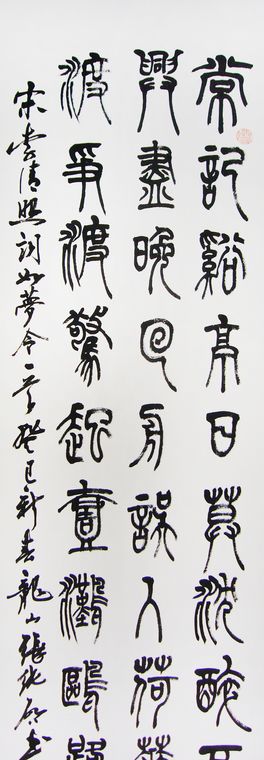 常記谿亭日莫沈醉
興盡晚回舟誤入荷
渡爭渡驚起壹灘鷗
宋李清照詞如夢令一首癸巳新春龍山張